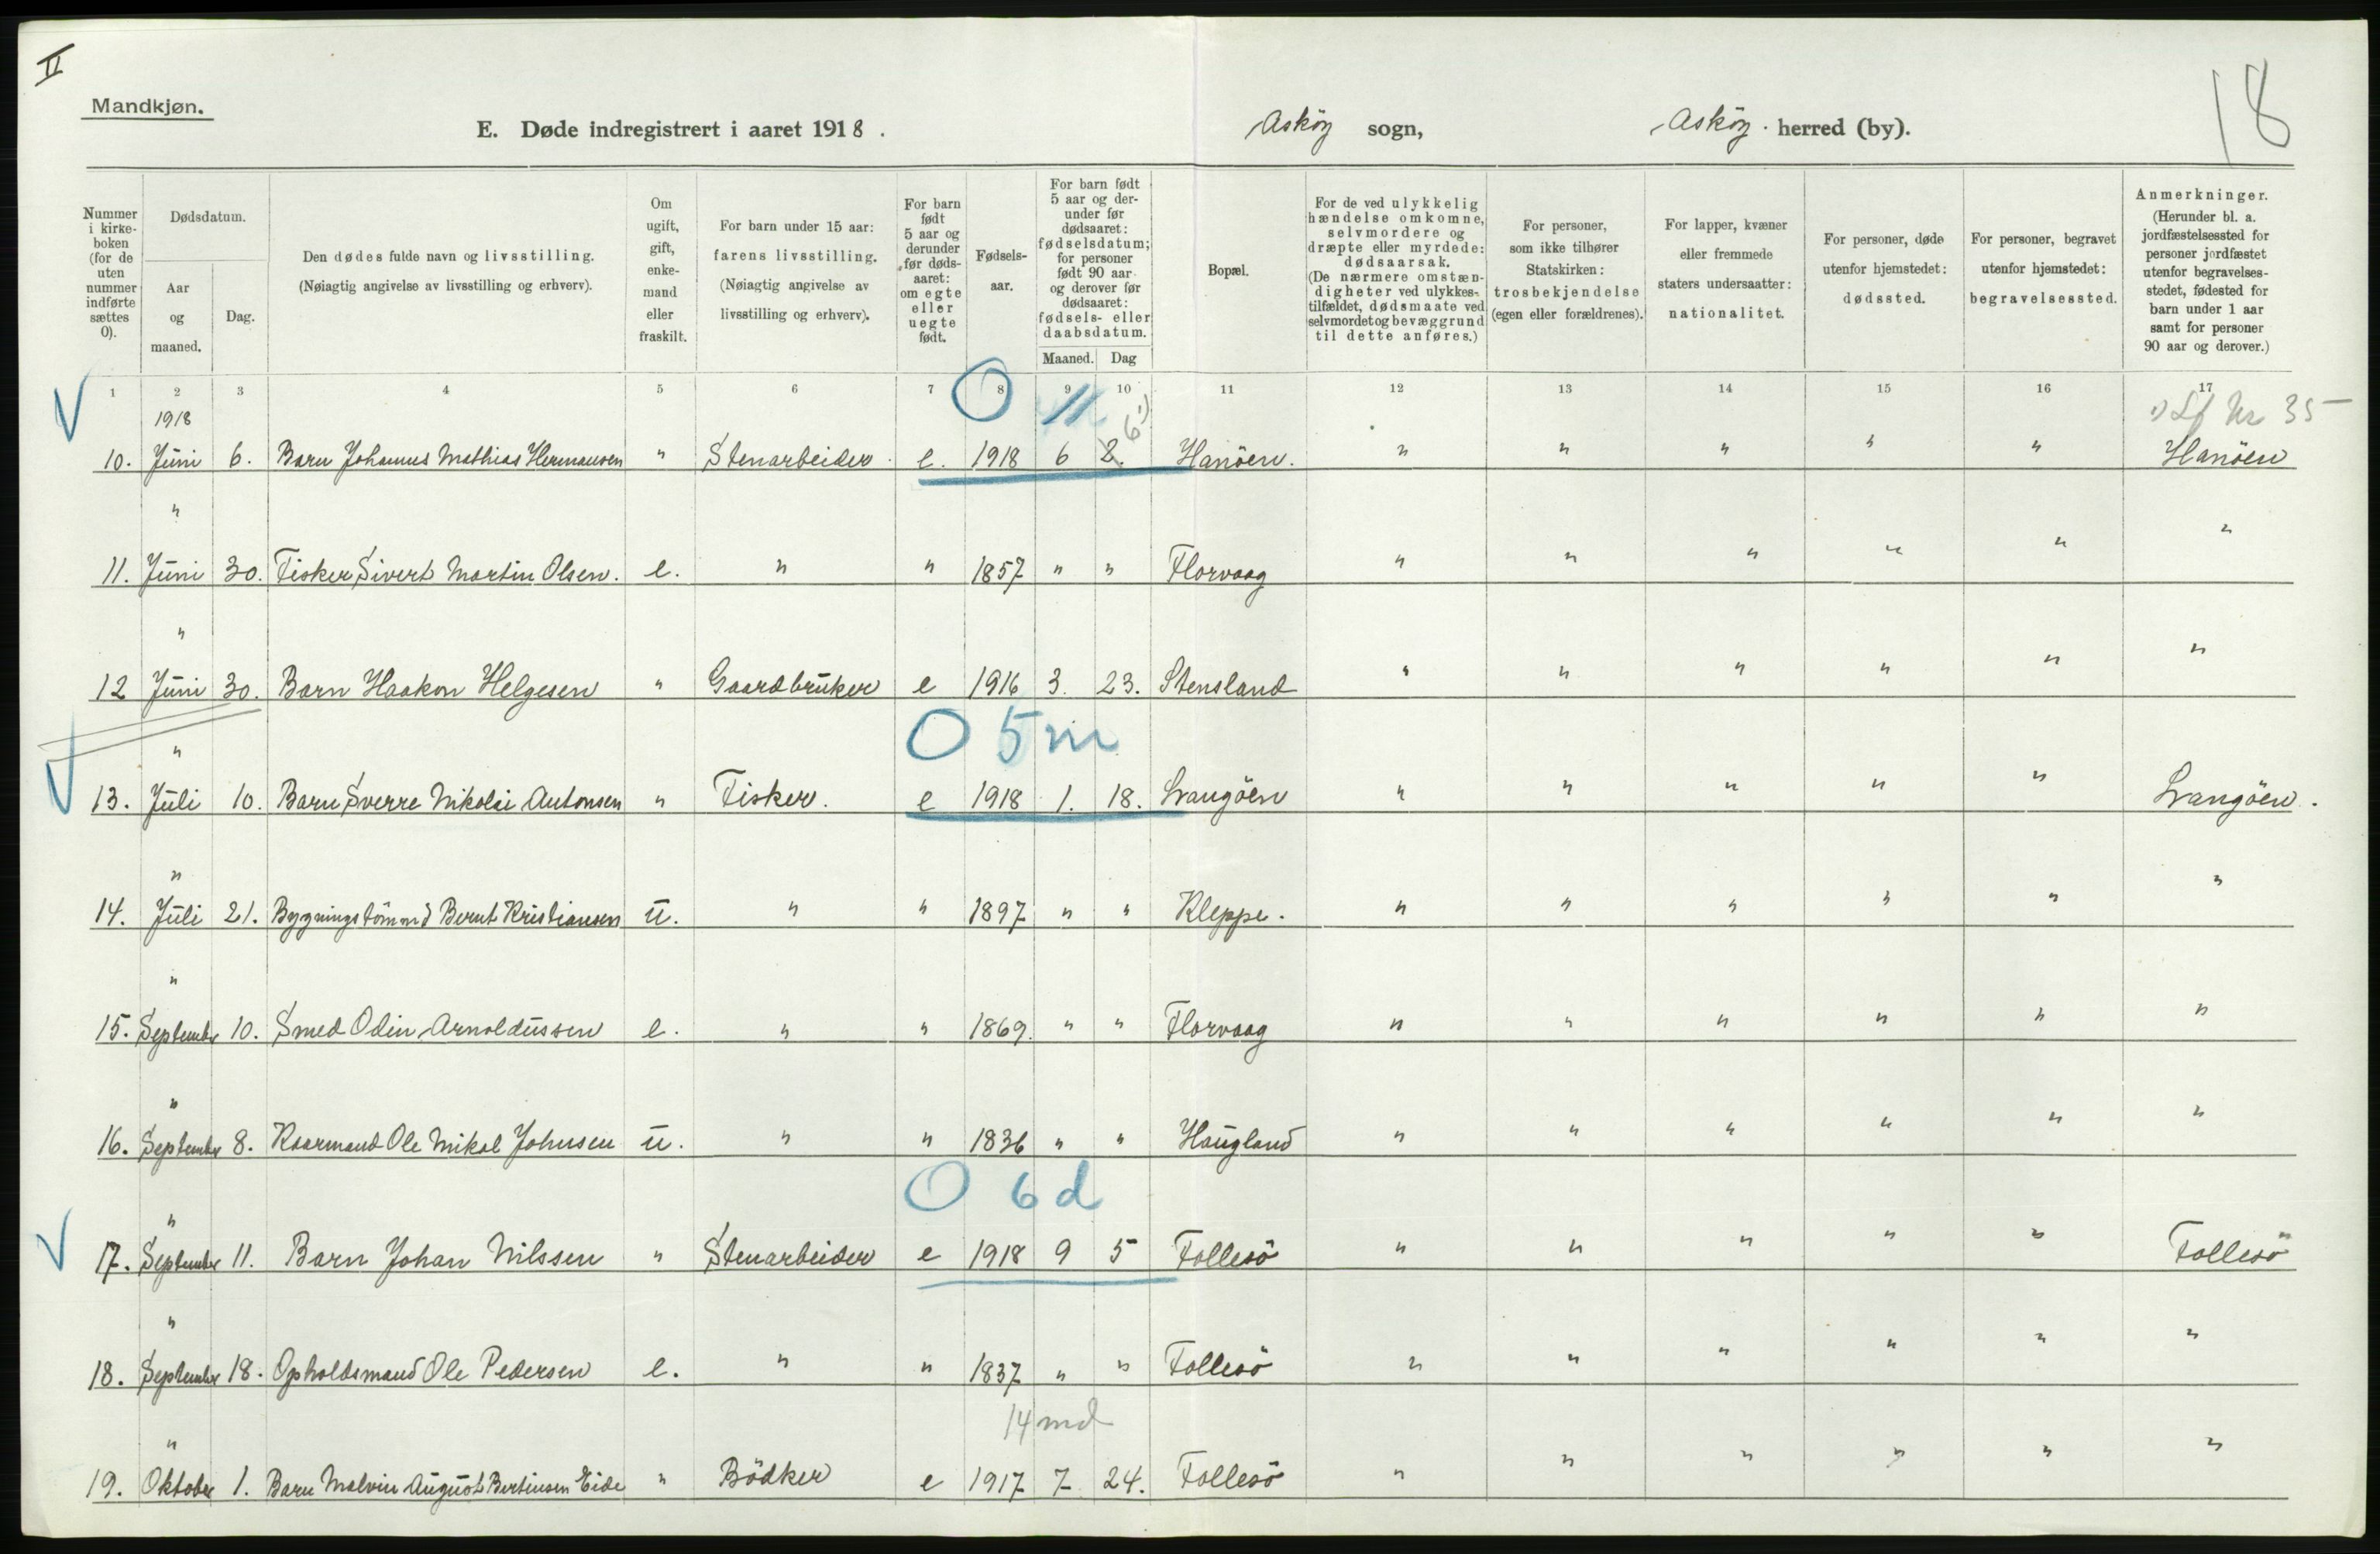 II
Mandkjøn.
E. Døde indregistrert i aaret 1918.
Asköy sogn, Asköy. herred (by).
18
Nummer i kirke-boken (for de uten nummer indførte sættes 0).
Dødsdatum.
Aar og maaned.
Dag.
Den dødes fulde navn og livsstilling. (Nøiagtig angivelse av livsstilling og erhverv).
Om ugift, gift, enke-mand eller fraskilt.
For barn under 15 aar: farens livsstilling. (Nøiagtig angivelse av livsstilling og erhverv).
For barn født 5 aar og derunder før døds-aaret: om egte eller uegte født.
Fødsels-aar.
For barn født 5 aar og der-under før dødsaaret: fødselsdatum; for personer født 90 aar og derover før dødsaaret: fødsels- eller daabsdatum.
Maaned. Dag
Bopæl.
For de ved ulykkelig hændelse omkomne, selvmordere og dræpte eller myrdede: dødsaarsak. (De nærmere omstæn-digheter ved ulykkes-tilfældet, dødsmaate ved selvmordet og bevæggrund til dette anføres.)
For personer, som ikke tilhører Statskirken: trosbekjendelse (egen eller forældrenes).
For lapper, kvæner eller fremmede staters undersaatter: nationalitet.
For personer, døde utenfor hjemstedet: dødssted.
For personer, begravet utenfor hjemstedet: begravelsessted.
Anmerkninger. (Herunder bl. a. jordfæstelsessted for personer jordfæstet utenfor begravelses-stedet, fødested for barn under 1 aar samt for personer 90 aar og derover.)
1 2 3 4 5 6 7 8 9 10 11 12 13 14 15 16 17
1918 0 11 6 1) 1) Lf Nr 35
10. Juni 6. Barn Johannes Mathias Hermansen " Stenarbeider. e. 1918 6 2. Hanöen. " " " " " Hanöen
"
11. Juni 30. Fisker Sivert Martin Olsen. e. " " 1857 " " Florvaag " " " " " "
"
12 Juni 30. Barn Haakon Helgesen " Gaardbruker e 1916 3. 23. Stensland " " " " " "
" 0 5 m
13. Juli 10. Barn Sverre Nikolai Antonsen " Fisker. e 1918 1. 18. Lvangöen " " " " " Lvangöen.
"
14. Juli 21. Bygningstömmd Bernt Kristiansen u. " " 1897 " " Kleppe. " " " " " "
"
15. September 10. Smed Odin Arnoldussen e. " " 1869. " " Florvaag " " " " " "
"
16. September 8. Kaarmand Ole Mikal Johnsen u. " " 1836 " " Haugland " " " " " "
" 0 6 d
17. September 11. Barn Johan Nilssen " Stenarbeider e 1918 9 5 Follesö " " " " " Follesö
"
18. September 18. Opholdsmand Ole Pedersen e. " " 1837 " " Follesö " " " " " "
" 14 md
19. Oktober 1. Barn Malvin August Bertinsen Eide " Bödker e 1917 7 24. Follesö " " " " " "